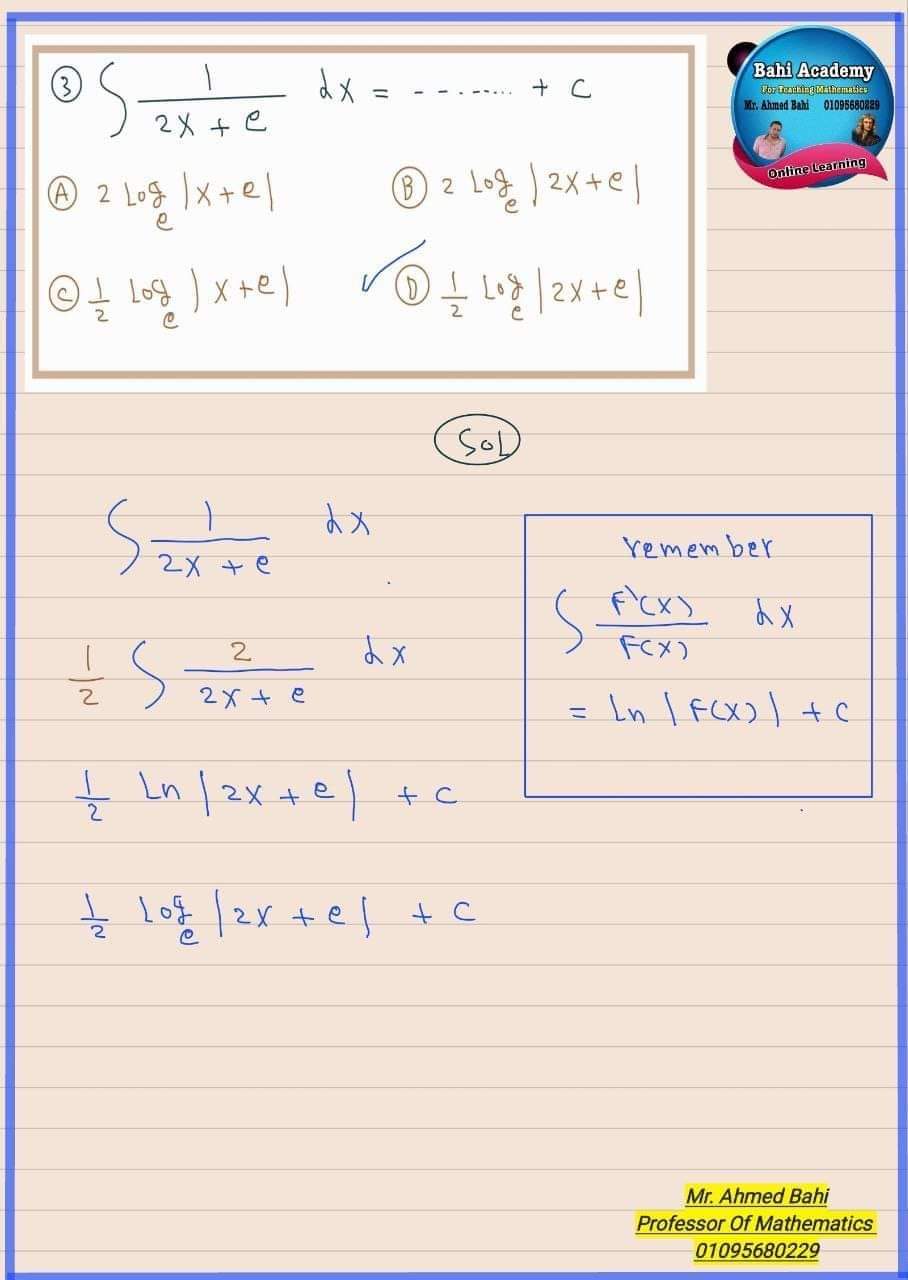 Bahi Academy
For Teaching Mathematics
Mr. Ahmed Bahi 01095680229
Online Learning
③ ∫ 1/(2x + e) dx = ---...... + C
Ⓐ 2 Log_e |x+e|
Ⓑ 2 Log_e |2x+e|
Ⓒ 1/2 Log_e |x+e|
✓ Ⓓ 1/2 Log_e |2x+e|
SoL
∫ 1/(2x + e) dx
1/2 ∫ 2/(2x + e) dx
1/2 Ln |2x + e| + c
1/2 Log_e |2x + e| + c
remember
∫ F'(x)/F(x) dx
= Ln |F(x)| + c
Mr. Ahmed Bahi
Professor Of Mathematics
01095680229